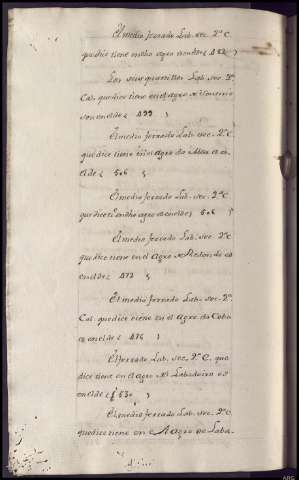 El medio ferrado Lab. sec. 2ª C.
que dice tiene en dho agro es en el de 482
Los seis quartillos Lab. sec. 2ª
Cal. que dice tiene en el agro de
son en el de 499
El medio ferrado Lab. sec. 2ª C.
que dice tiene en el agro da es
el de 506
El medio ferrado Lab. sec. 2ª C.
que dice tiene en dho agro es en el de 506
El medio ferrado Lab. sec. 2ª C.
que dice tiene en el Agro do Redondo es
en el de 472
El medio ferrado Lab. sec. 2ª
Cal. que dice tiene en el agro da Coba
es en el de 476
El ferrado Lab. sec. 2ª C. que
dice tiene en el agro do Labadoiro es
en el de 530
El medio ferrado Lab. sec. 2ª C.
que dice tiene en el Agro de Laba-